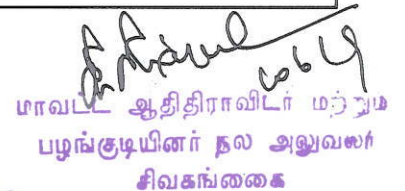 மாவட்ட ஆதிதிராவிடர் மற்றும்
பழங்குடியினர் நல அலுவலர்
சிவகங்கை